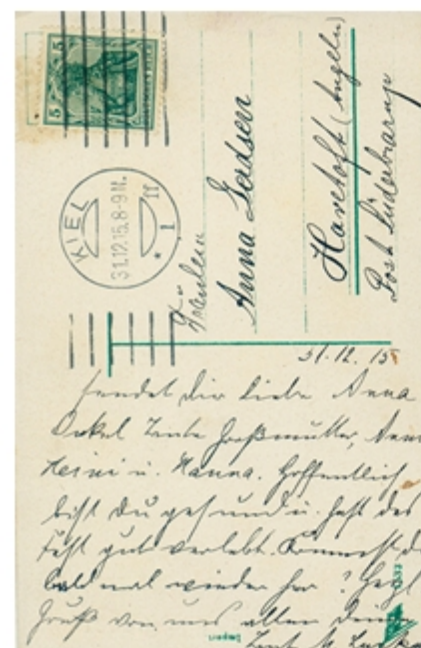 5 5
KIEL
31.12.15.8-9N.
* 1 ff
Fräulein
Anna Gerdsen
Havetoft (Angeln)
Post Süderbrarup
31.12.15
sendet dir liebe Anna
Onkel Tante Großmutter,
Heini u. Hanna. Hoffentlich
bist du gesund u. hast das
Fest gut verlebt. Kommst d
bald mal wieder her? Herzl
Gruß von uns allen Deine
Tante